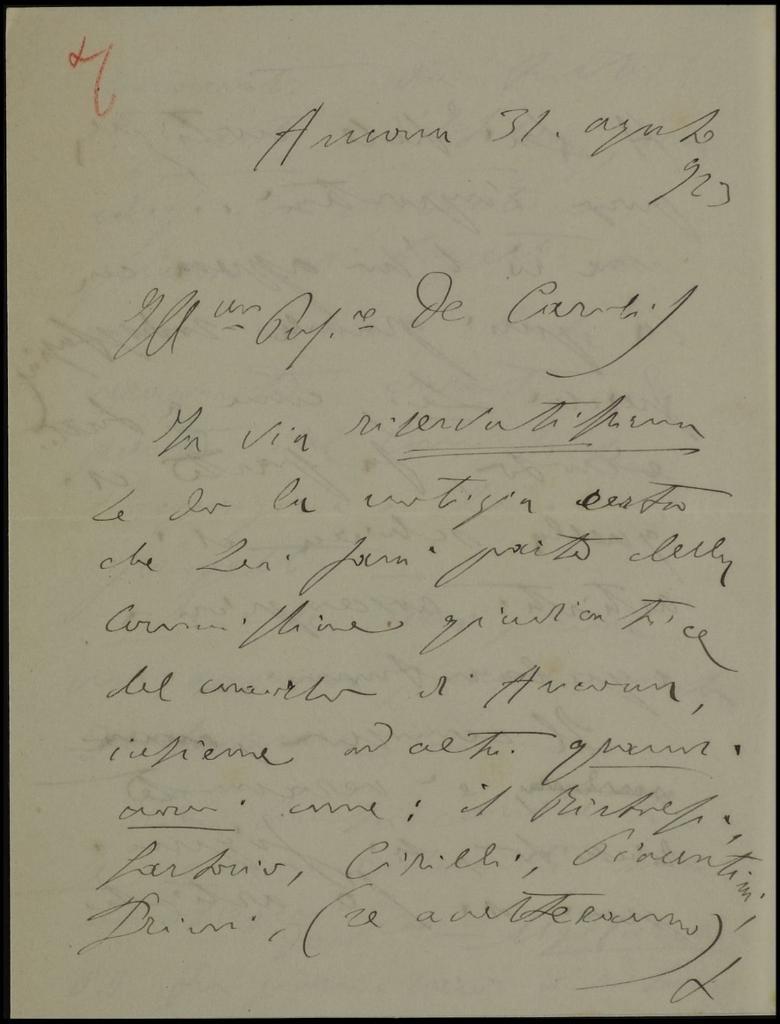 Ancona 31. agosto
923
Ill.mo Prof.re De Carolis
In via riservatissima
Le do la notizia certa
che Lei farà parte della
Commissione giudicatrice
del concorso di Ancona,
insieme ad altri
come: il Bistolfi,
Sartorio, Cirilli, Piacentini,
(se accetteranno)